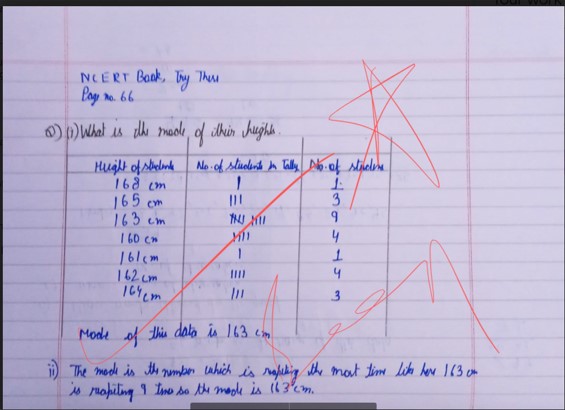 NCERT Book, Try These
Page no. 66
Q) (i) What is the mode of their hight.
Height of students No. of students in Tally No. of students
168 cm | 1
165 cm ||| 3
163 cm |||| |||| 9
160 cm |||| 4
161 cm | 1
162 cm |||| 4
164 cm ||| 3
Mode of this data is 163 cm
ii) The mode is the number which is the most time like here 163 cm
is 9 times so the mode is 163 cm.